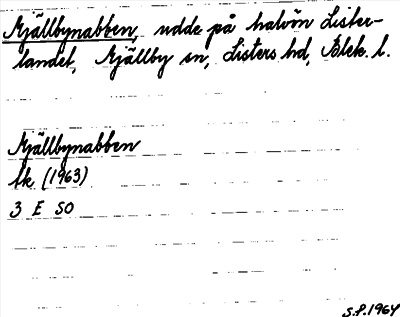 Mjällbynabben, udde på halvön Lister-
landet, Mjällby sn, Listers hd, Blek. l.
Mjällbynabben
Ek (1963)
3 E SO
S.P. 1964